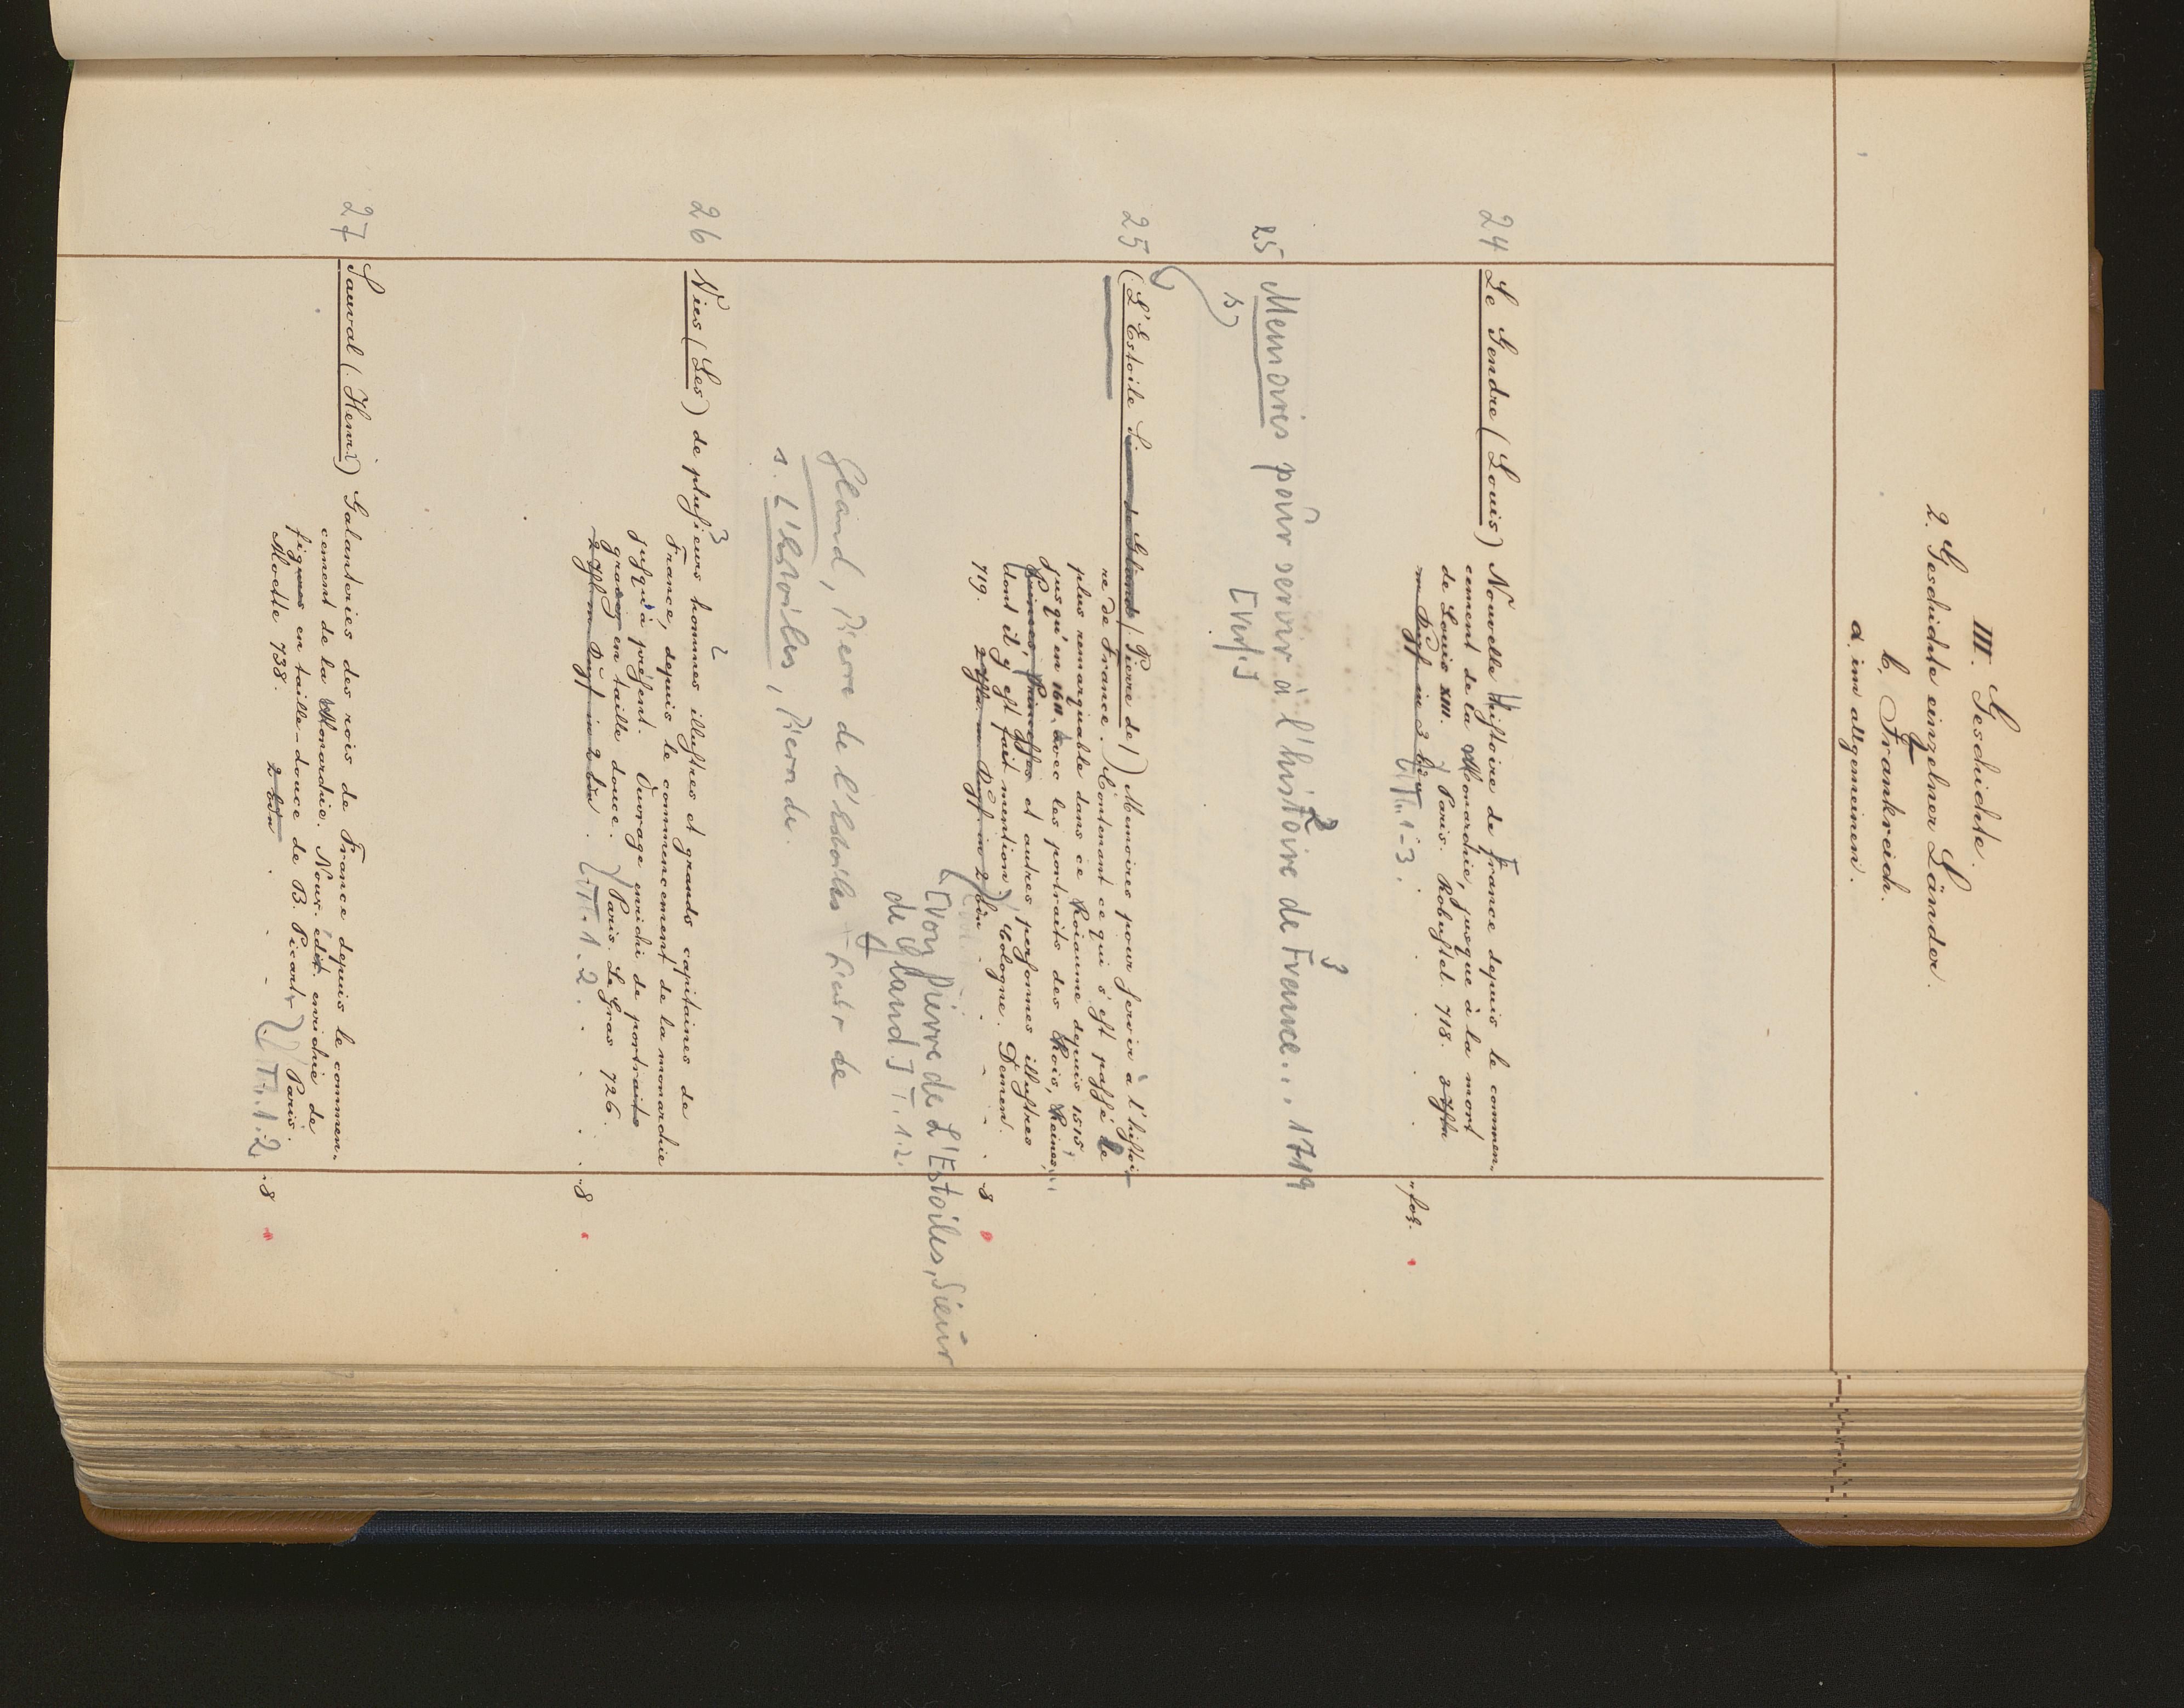 III. Geschichte.
2. Geschichte einzelner Länder.
b. Frankreich.
a. im allgemeinen.
24 Le Gendre (Louis) Nouvelle Histoire de France depuis le commen-
cement de la Monarchie, jusque à la mort
de Louis XIII. Paris. Robustel. 718.
T. 1-3. fol.
25 Memoires pour servir à l'histoire de France... 1719
[Verf.]
25 (L'Estoile S. de Gland (Pierre de)) Memoires pour servir à l'histoi-
re de France. Contenant ce qui s'est passé de
plus remarquable dans ce Roiaume depuis 1515,
jusqu'en 1611. avec les portraits des Rois, Reines,
Princes, Princesses et autres personnes illustres
dont il y est fait mention. Cologne. Demen.
719. 8
[Von Pierre de L'Estoiles, Sieur
de Gland] T. 1.2.
Gland, Pierre de l'Estoiles Sieur de
s. L'Estoiles, Pierre de.
26 Vies (Les) de plusieurs hommes illustres et grands capitaines de
France, depuis le commencement de la monarchie
jusqu'à présent. Ouvrage enrichi de portraits
gravez en taille douce. Paris. Le Gras 726.
T. 1.2. 8
27 Sauval (Henri) Galanteries des rois de France depuis le commen-
cement de la Monarchie. Nouv. édit. enrichie de
figures en taille-douce de B. Picart. Paris.
Moette 738. 2 bdn T. 1.2. 8